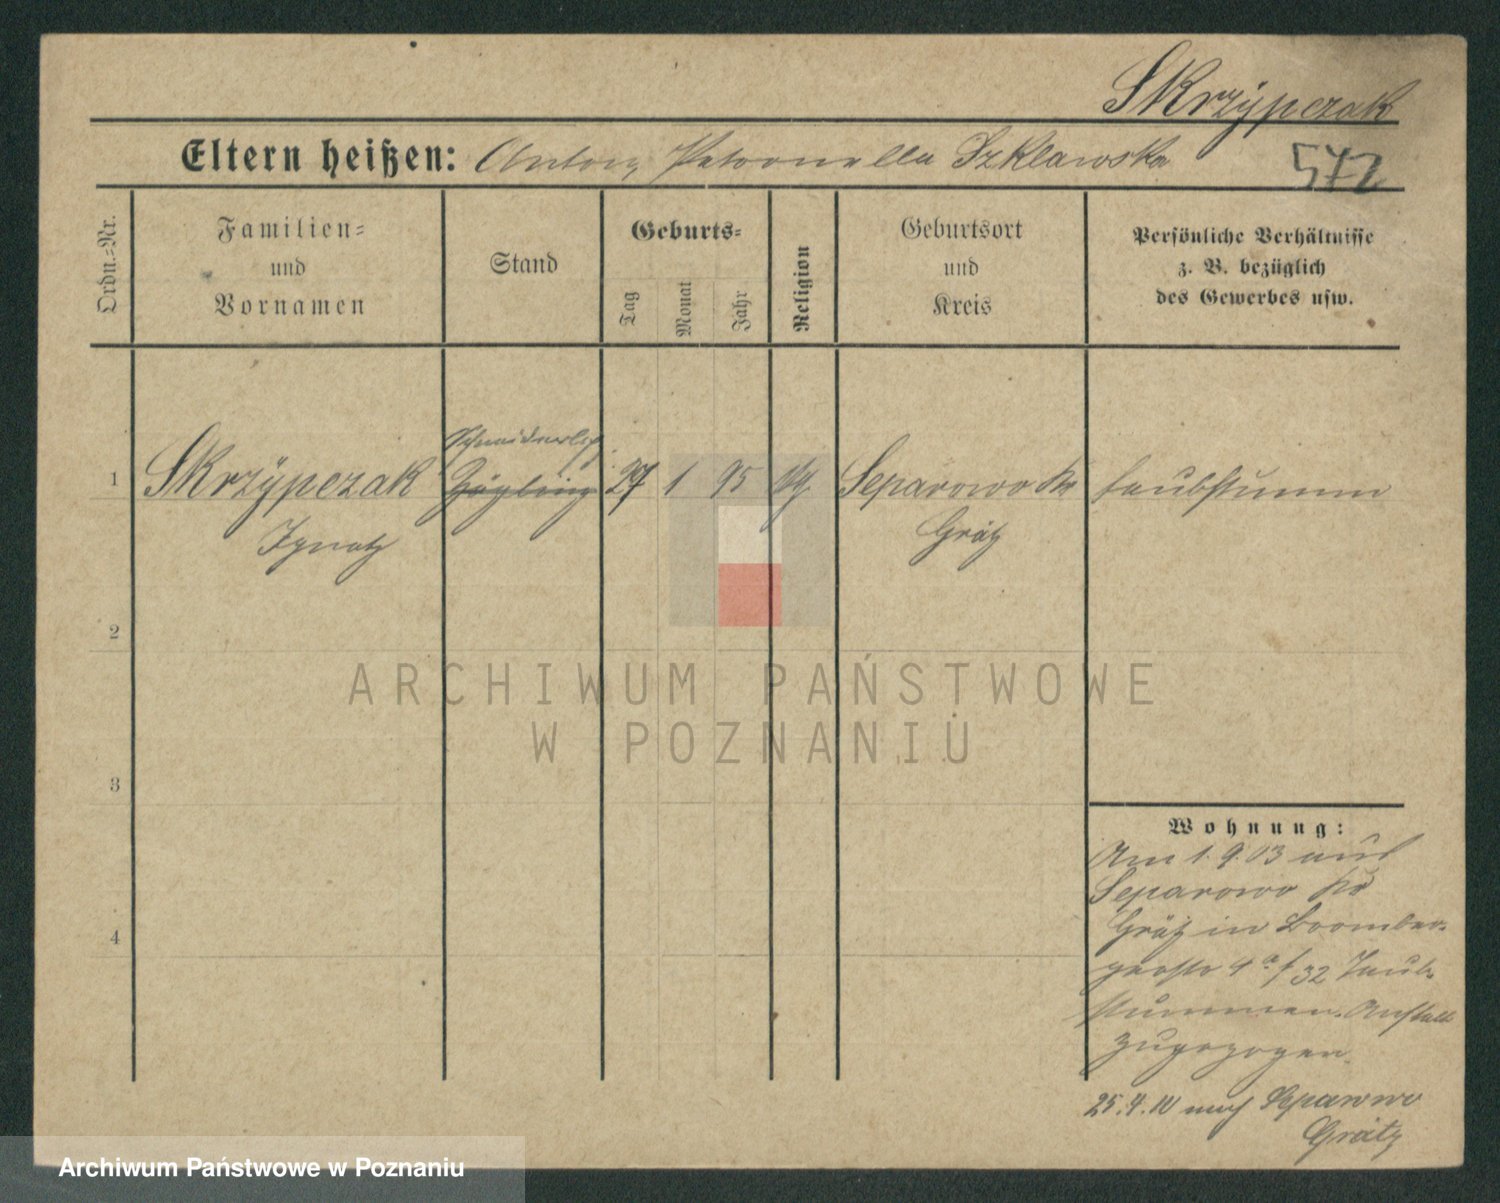 Skrzÿpczak
Eltern heißen: Anton, Petronella Szklarska
572
Ordn.-Nr.
Familien-
und
Vornamen
Stand
Geburts-
Tag
Monat
Jahr
Religion
Geburtsort
und
Kreis
Persönliche Verhältnisse
z. B. bezüglich
des Gewerbes usw.
Schneiderlehrl.
1 Skrzÿpczak Zögling 27 1 95 Separowo Kr taubstumm
Ignatz Grätz
2
3
4
Wohnung:
Am 1.9.03 aus
Separowo Kr
Grätz in Bromber-
gerstr 4a/32 Taub-
stummen-Anstalt
zugezogen.
25.4.10 nach Separowo
Grätz
ARCHIWUM PAŃSTWOWE
W POZNANIU
Archiwum Państwowe w Poznaniu